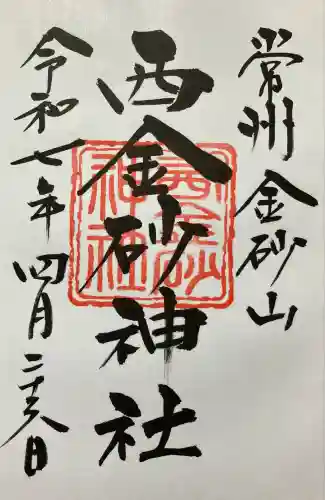 常州 金砂山
西金砂神社
令和七年 四月 二十六日
西金砂
神社